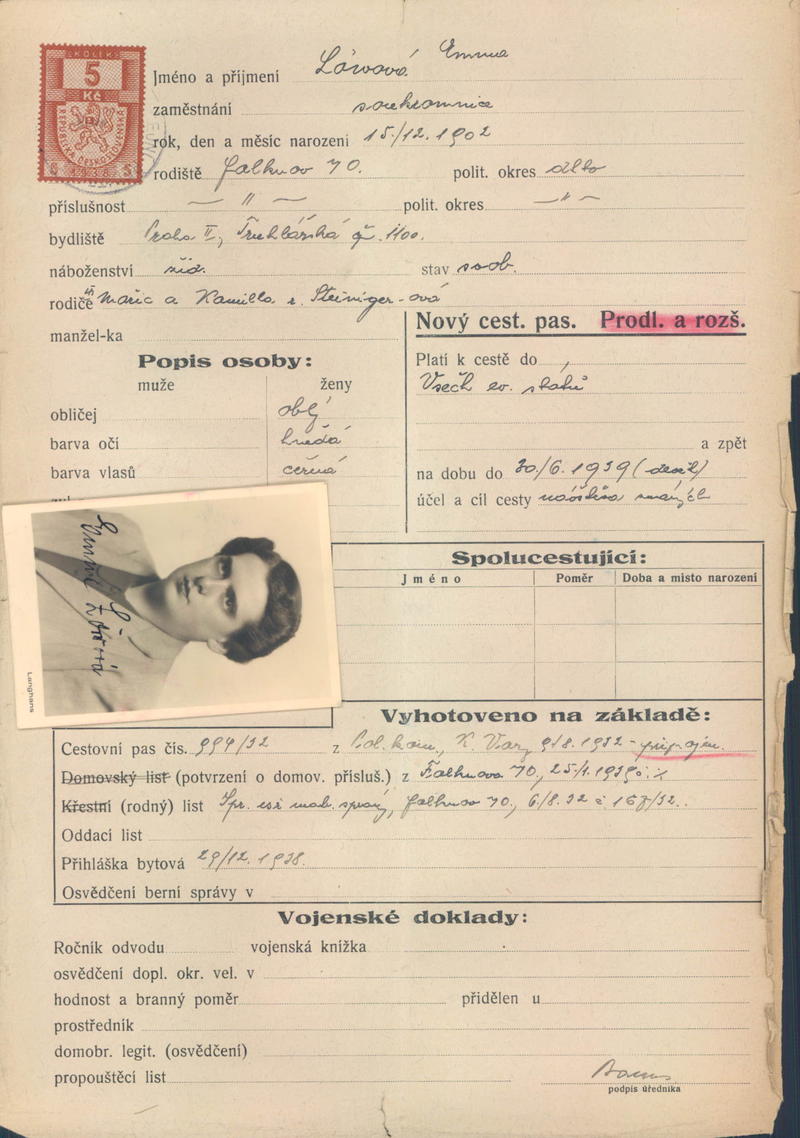 KOLEK
5
Kč
REPUBLIKA ČESKOSLOVENSKÁ
1938
Jméno a příjmení Löwová Emma
zaměstnání soukromnice
rok, den a měsíc narození 15/12. 1902
rodiště Falknov n/O. polit. okres dtto
příslušnost — " — polit. okres — " —
bydliště Praha II, Truhlářská č. 1100.
náboženství žid. stav svob.
rodiče Mařic a Kamilla r. Steininger-ová
manžel-ka
Nový cest. pas. Prodl. a rozš.
Popis osoby:
muže ženy
obličej oblý
barva očí hnědá
barva vlasů černá
Platí k cestě do
Všech ev. států
a zpět
na dobu do 30/6. 1939
účel a cíl cesty návštěva známých
Emma Löwová
Langhans
Spolucestující:
Jméno Poměr Doba a místo narození
Vyhotoveno na základě:
Cestovní pas čís. 994/32 z Pol. kom. K. Vary 9/8. 1932 - připojen.
Domovský list (potvrzení o domov. přísluš.) z Falknova n/O., 25/1. 1939
Křestní (rodný) list Spr. isr. mat. správy, Falknov n/O., 6/8. 32 č 167/32.
Oddací list
Přihláška bytová 29/12. 1938.
Osvědčení berní správy v
Vojenské doklady:
Ročník odvodu vojenská knížka
osvědčení dopl. okr. vel. v
hodnost a branný poměr přidělen u
prostředník
domobr. legit. (osvědčení)
propouštěcí list
podpis úředníka